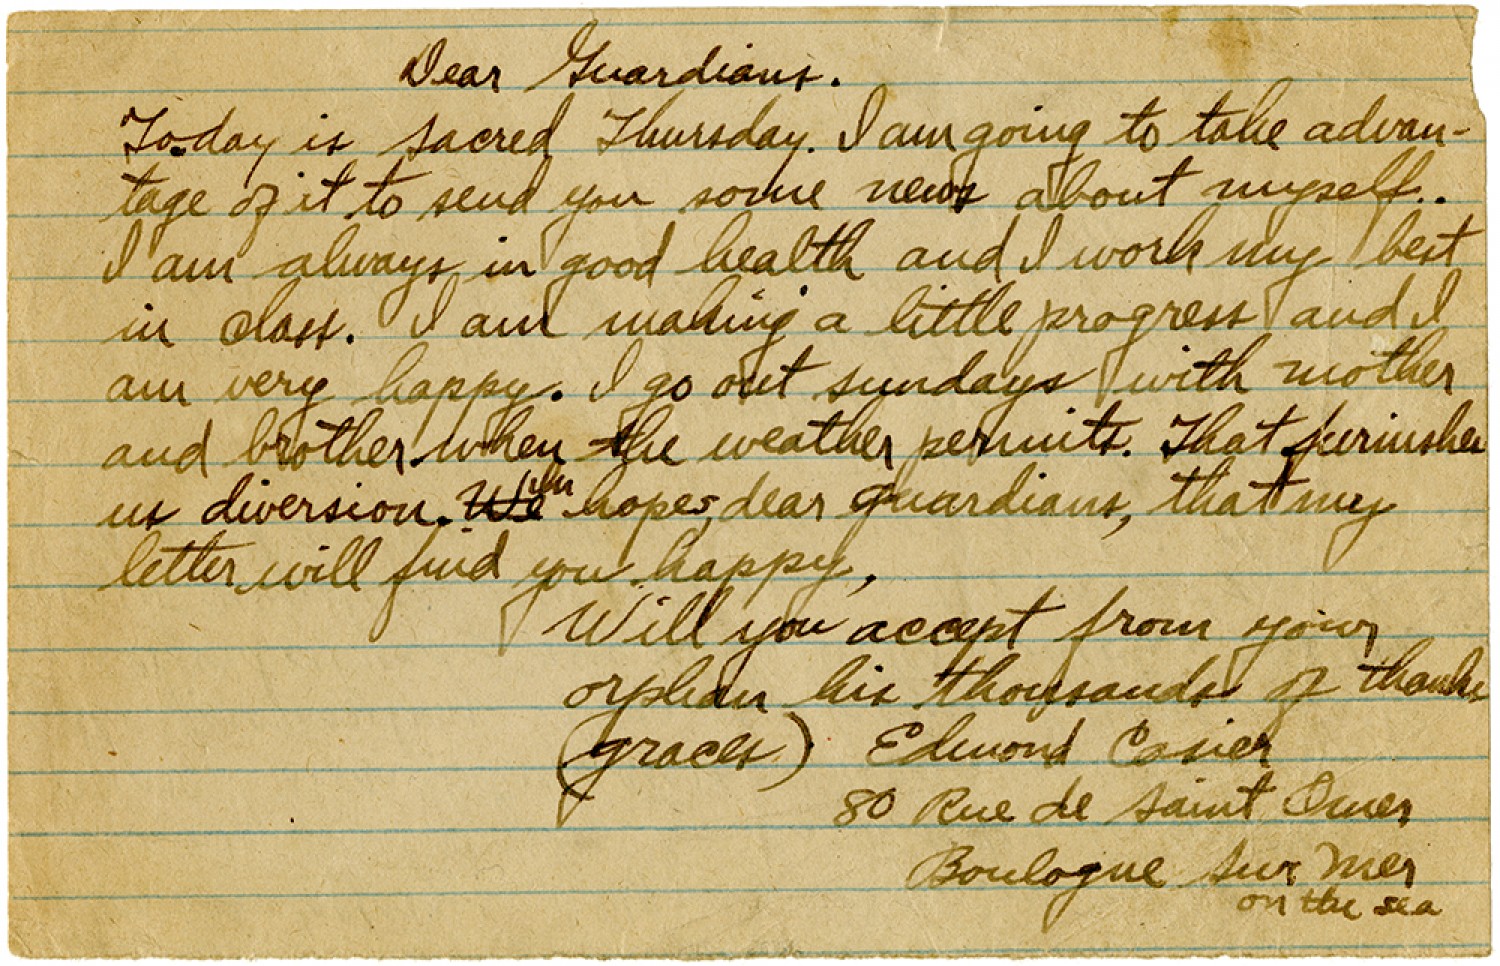 Dear Guardians.
To-day is sacred Thursday. I am going to take advan-
tage of it to send you some news about myself..
I am always in good health and I work my best
in class. I am making a little progress and I
am very happy. I go out sundays with mother
and brother when the weather permits. That furnishes
us diversion. We hope, dear guardians, that my
letter will find you happy,
Will you accept from your
orphan his thousands of thanks
(graces) Edmond Casier
80 Rue de Saint Omer
Boulogne sur Mer
on the sea